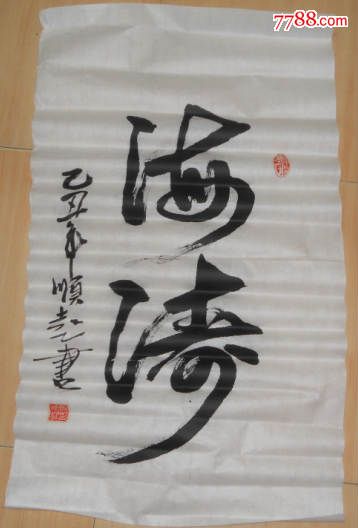 7788.com
海涛
乙丑年顺
书